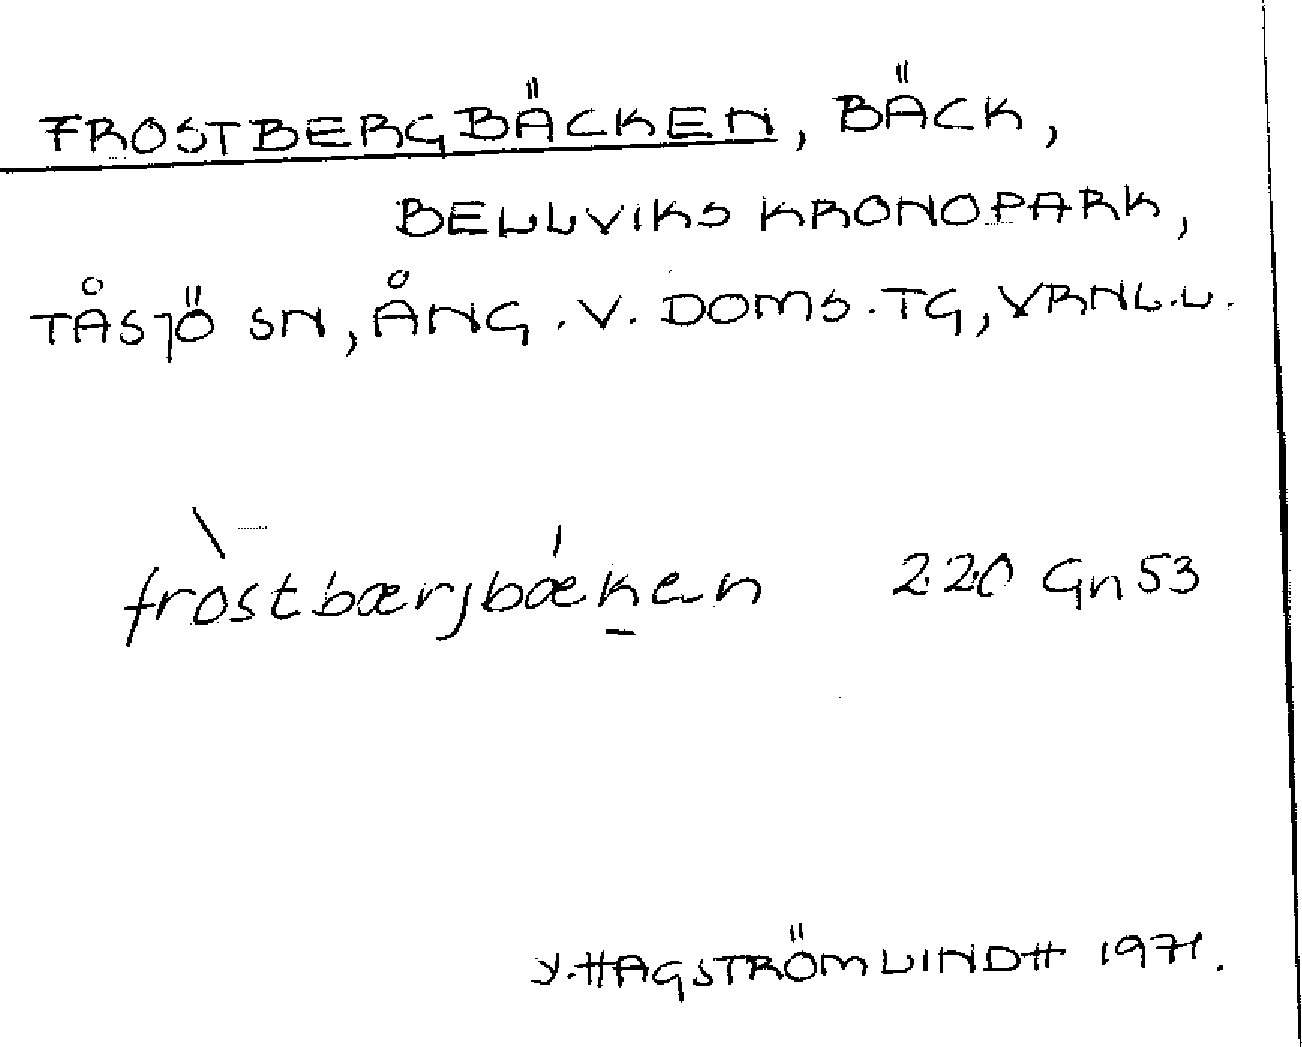 FROSTBERGBÄCKEN, BÄCK,
BELLVIKS KRONOPARK,
TÅSJÖ SN, ÅNG. V. DOMS. TG, VRNL.L.
fròstbærjbǽḵen 220 Gn 53
Y. HAGSTRÖM LINDH 1971.